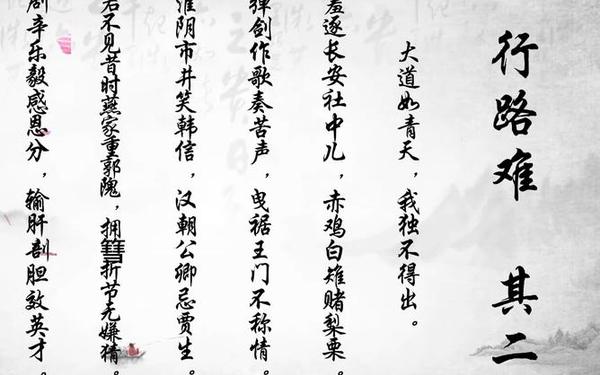 行路难 其二
大道如青天，我独不得出。
羞逐长安社中儿，赤鸡白雉赌梨栗。
弹剑作歌奏苦声，曳裾王门不称情。
淮阴市井笑韩信，汉朝公卿忌贾生。
君不见昔时燕家重郭隗，拥篲折节无嫌猜。
剧辛乐毅感恩分，输肝剖胆效英才。